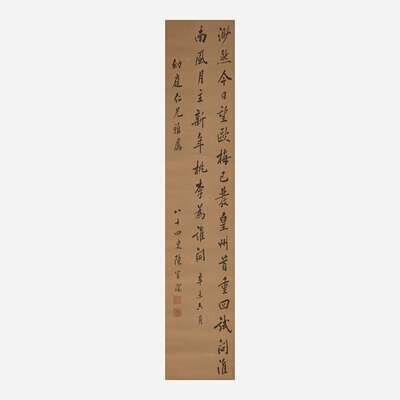 渺然今日望歐梅已發皇州首重回試問淮
南風月主新年桃李為誰開 辛未六月
釗庭仁兄雅屬
八十四叟陳寶琛